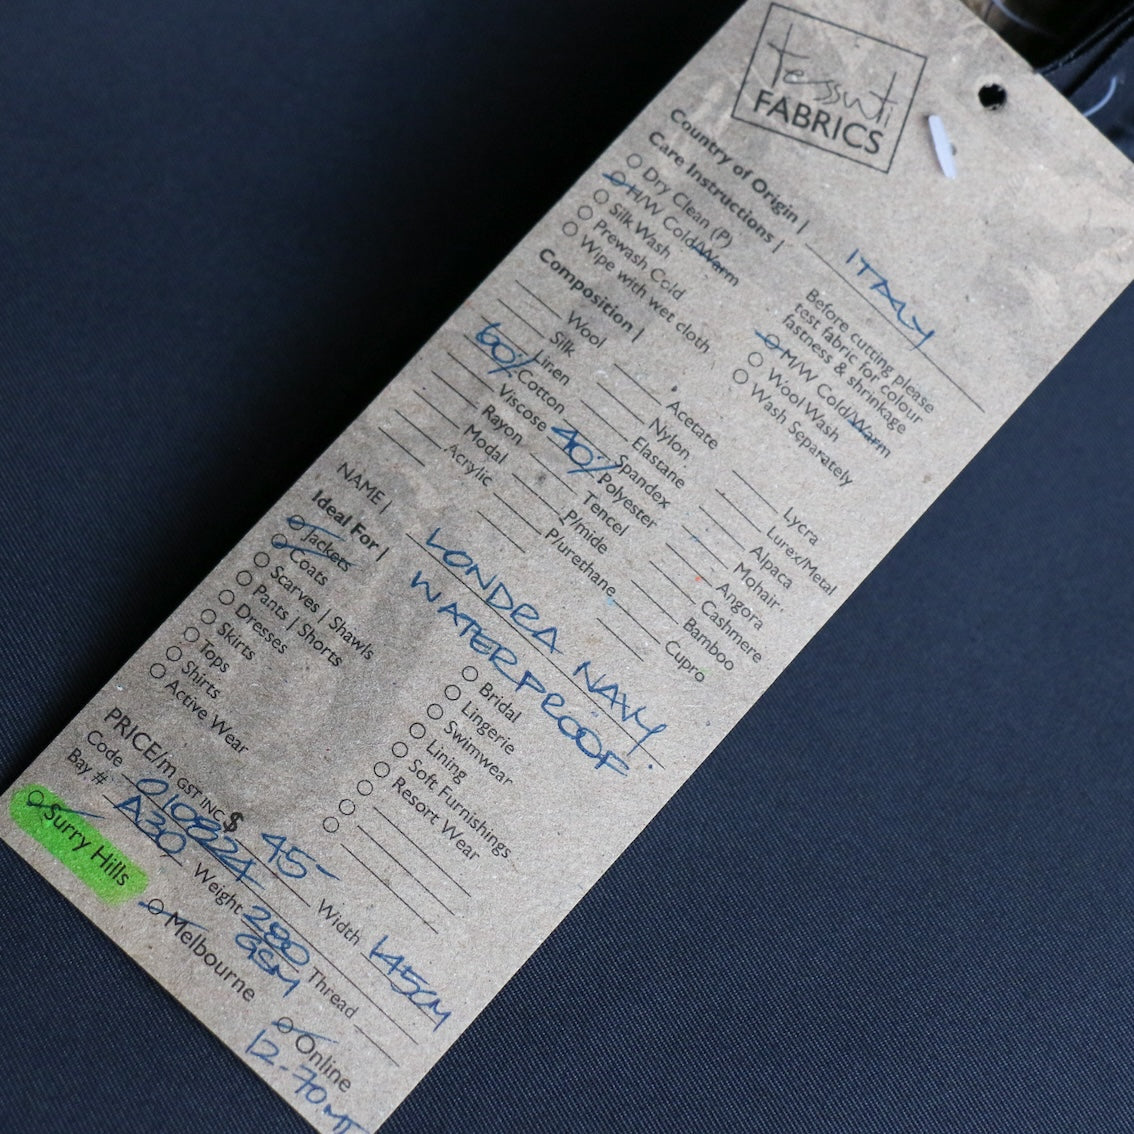 tessuti
FABRICS
Country of Origin | ITALY
Care Instructions |
Dry Clean (P)
H/W Cold/Warm
Silk Wash
Prewash Cold
Wipe with wet cloth
Before cutting please
test fabric for colour
fastness & shrinkage
M/W Cold/Warm
Wool Wash
Wash Separately
Composition |
Wool
Silk
Linen
60% Cotton
Viscose
Rayon
Modal
Acrylic
Acetate
Nylon
Elastane
Spandex
40% Polyester
Tencel
P/mide
P/urethane
Lycra
Lurex/Metal
Alpaca
Mohair
Angora
Cashmere
Bamboo
Cupro
NAME | LONDRA NAVY
WATERPROOF
Ideal For |
Jackets
Coats
Scarves | Shawls
Pants | Shorts
Dresses
Skirts
Tops
Shirts
Active Wear
Bridal
Lingerie
Swimwear
Lining
Soft Furnishings
Resort Wear
PRICE/m GST INC $ 45-
Code 010824 Width 145CM
Bay # A30 Weight 280 GSM Thread
Surry Hills
Melbourne
Online
12.70MT